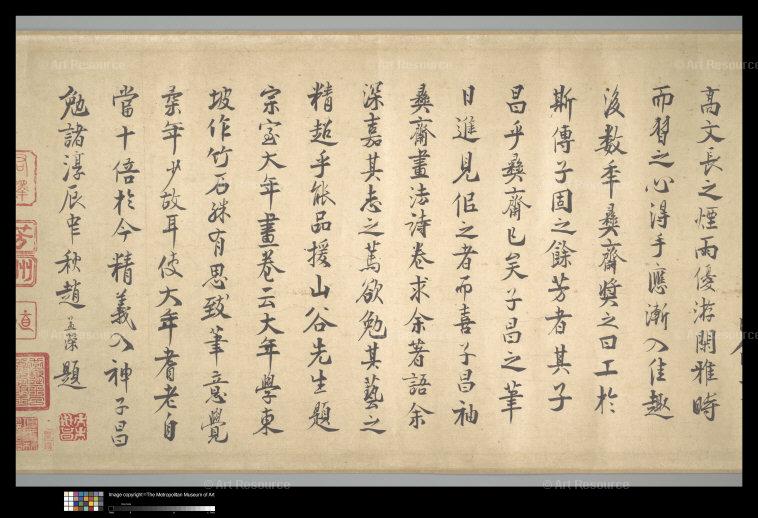 高文長之煙雨優游閑雅時
而習之心得手應漸入佳趣
後數年彝齋奬之曰工於
斯傳子固之餘芳者其子
昌乎彝齋已矣子昌之筆
日進見但之者而喜子昌袖
彝齋畫法詩卷求余著語余
深嘉其志之篤欲勉其藝之
精超乎能品援山谷先生題
宗室大年畫卷云大年學東
坡作竹石殊有思致筆意覺
柔年少故耳使大年耆老自
當十倍於今精義入神子昌
勉諸淳辰中秋趙孟濚題
© Art Resource
Image copyright ©The Metropolitan Museum of Art